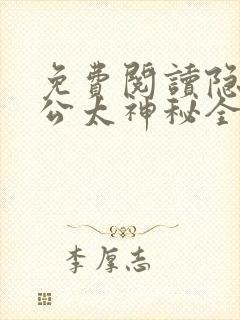 免費閱讀隐
公太神秘全
李厚志